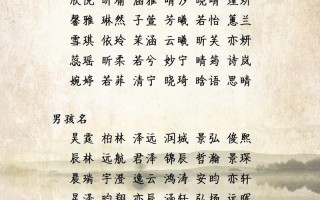 馨雅 琳然 子萱 芳曦 若怡 蕙兰
雪琪 依玲 茉涵 云曦 昕芙 亦妍
蕊瑶 昕柔 若兮 妙宁 晴曦 诗涵
婉婷 若菲 清宁 晓琦 晗语 思晴
男孩名
昊霆 柏林 泽远 润城 景弘 俊熙
辰林 远航 君泽 锦辰 哲瀚 景琛
晨瑞 宇澄 逸云 鸿涛 安昀 亦轩